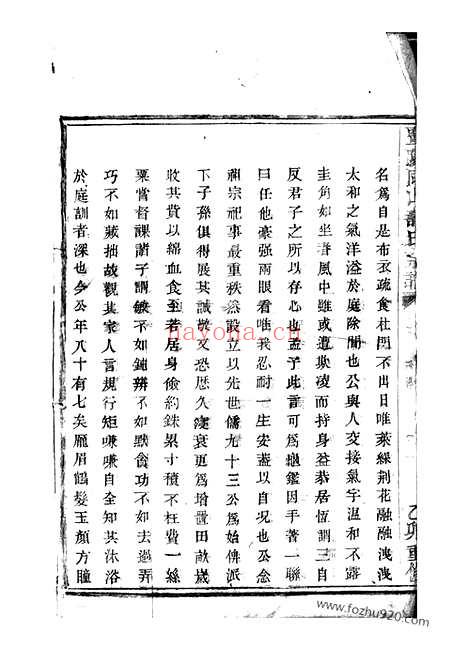 名爲自是布衣疏食杜門不出日唯萊綵荆花融融洩洩
太和之氣洋溢於庭除間也公與人交接氣宇溫和不露
圭角如坐春風中雖或遭欺凌而持身益恭居恆謂三自
反君子之所以存心也孟子此言可爲龜鑑因手著一聯
曰任他豪强兩眼看唯我忍耐一生安蓋以自况也公念
禰宗祀事最重秩然設立以先世儒九十三公爲始俾派
下子孫俱得展其誠敬又恐歷久寖衰更爲增置田畝歲
收其賞以綿血食至若居身儉約銖累寸積不枉費一絲
粟嘗督課諸子謂敏不如鈍辨不如默食功不如去過弄
巧不如藏拙故觀其家人言規行矩嗛嗛自全知其沐浴
於庭訓者深也今公年八十有七矣龎眉鶴髮玉顔方瞳
乙卯重修
nayona.cn
www.fozhu920.com